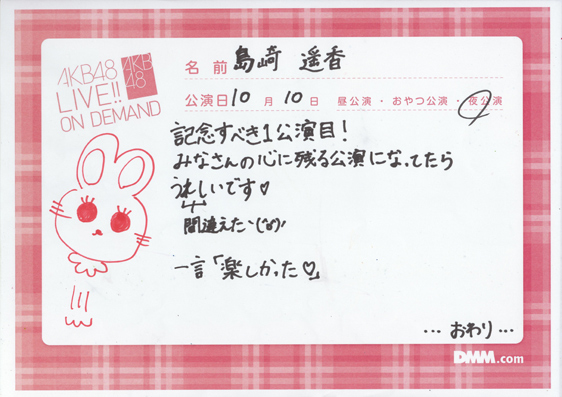 AKB48
LIVE!!
ON DEMAND
AKB
48
名前 島崎 遥香
公演日 10月10日 昼公演・おやつ公演・夜公演
記念すべき1公演目!
みなさんの心に残る公演になってたら
うれしいです♡
間違えた
一言「楽しかった♡」
... おわり ...
DMM.com